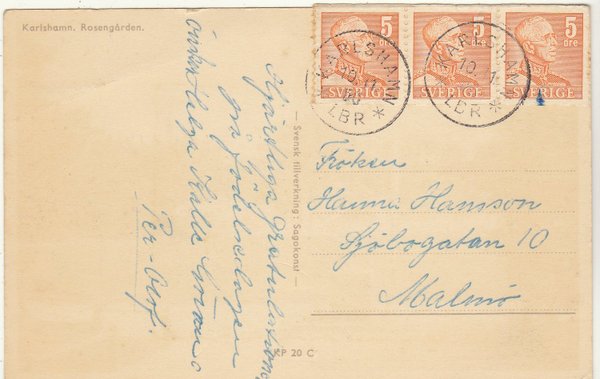 Karlshamn. Rosengården.
Hjärtliga gratulationer
på
födelsedagen
önskar Helga Kalle Göran o
Per-Olof.
— Svensk tillverkning: Sagokonst —
KP 20 C
5 öre
SVERIGE
5
SVERIGE
5 öre
SVERIGE
KARLSHAMN
LBR *
KARLSHAMN
10. 1
LBR *
Fröken
Hanna Hansson
Sjöbogatan 10
Malmö